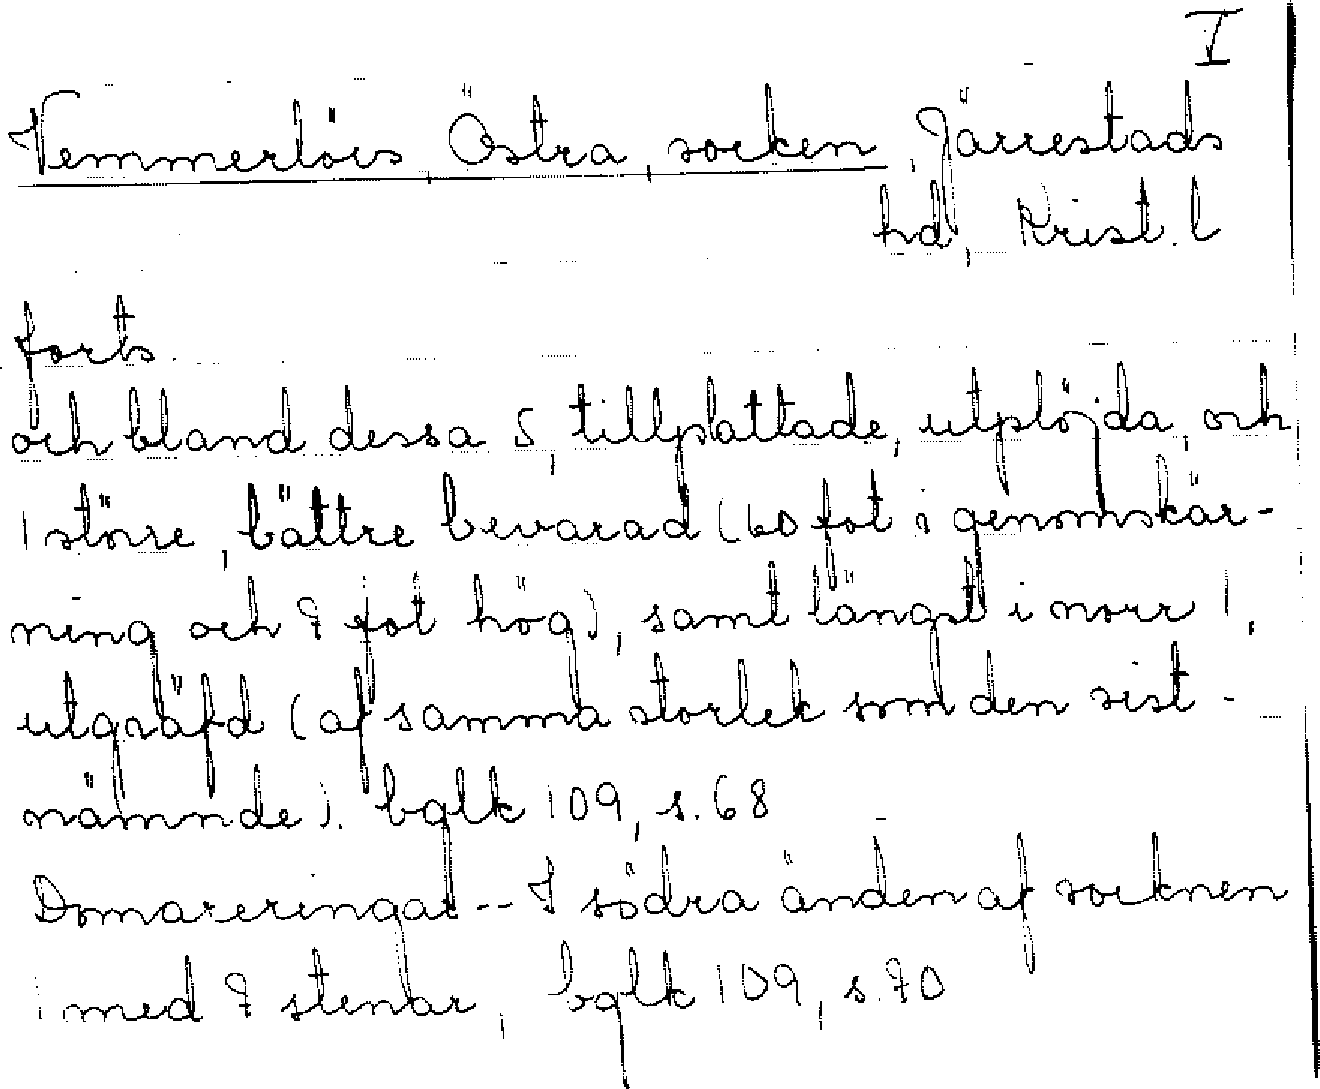 I
Vemmerlövs Östra, socken, Järrestads
hd, Krist. l
forts.
och bland dessa 5, tillplattade, utplöjda, och
1 större, bättre bevarad (60 fot i genomskär-
ning och 7 fot hög), samt längst i norr 1,
utgräfd (af samma storlek som den sist-
nämnde). bglk 109, s. 68
Domareringar -- I södra änden af socknen
1 med 7 stenar, bglk 109, s. 70